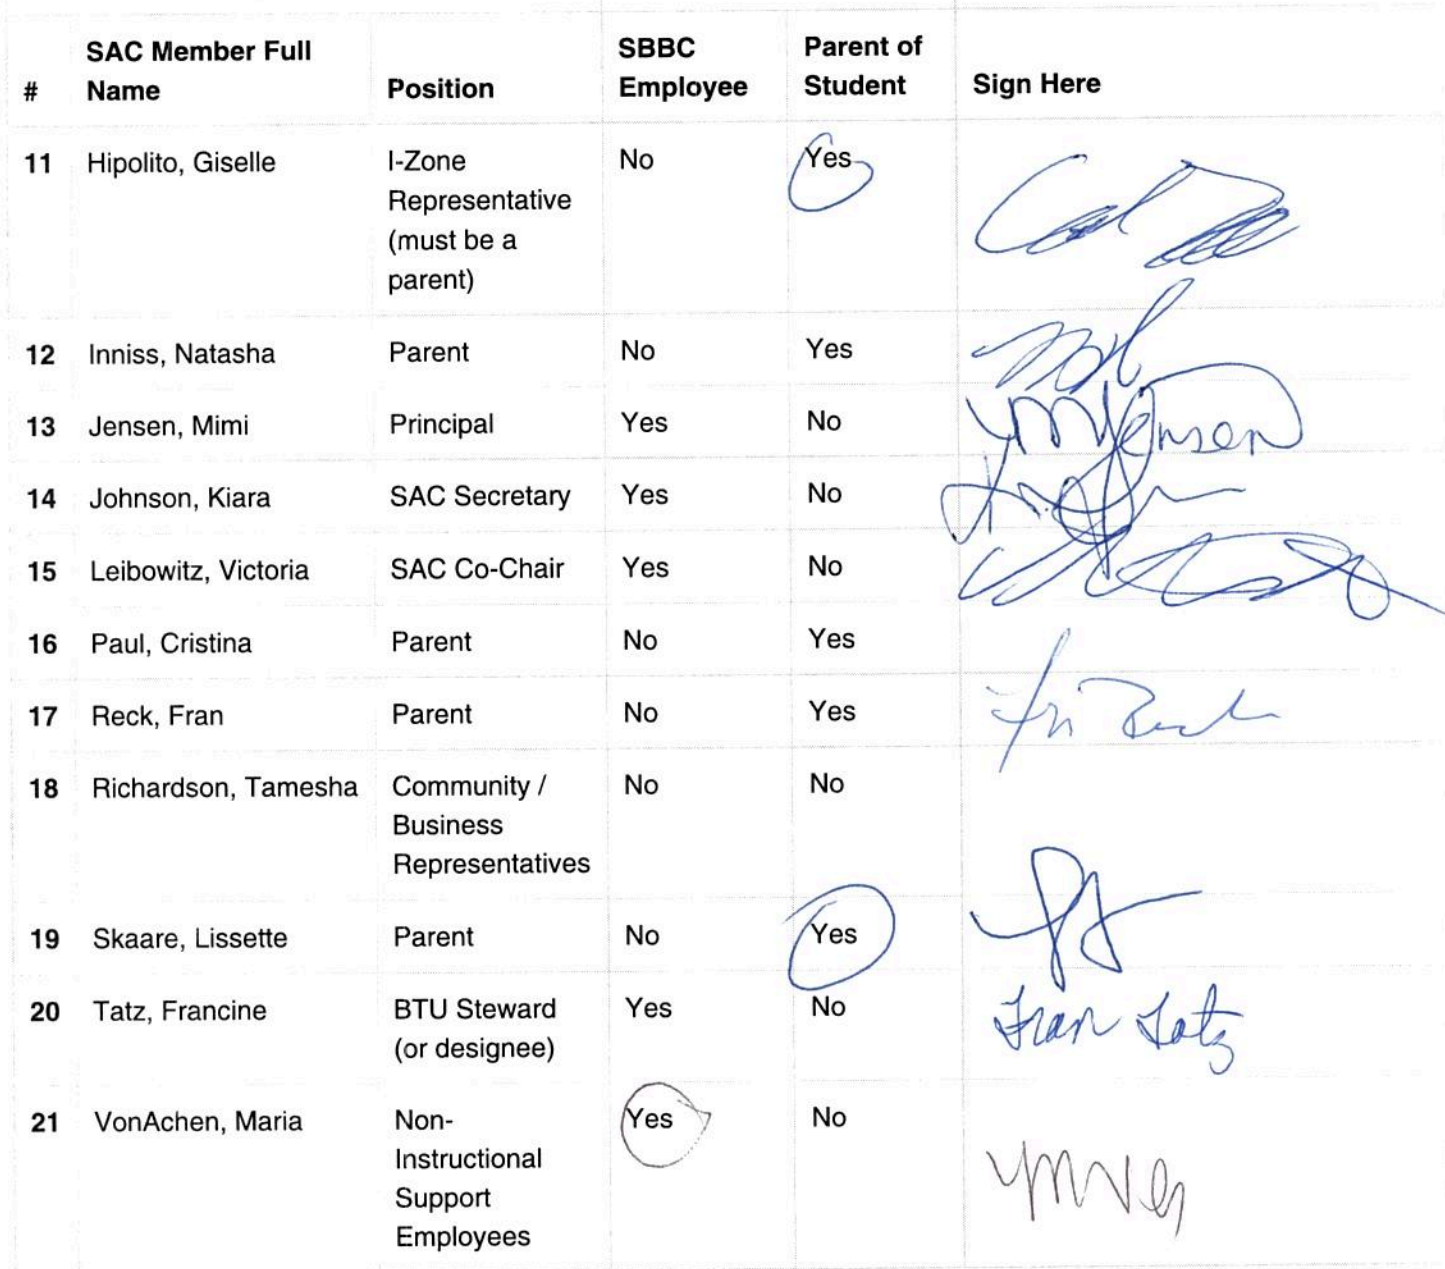 # SAC Member Full Name Position SBBC Employee Parent of Student Sign Here
11 Hipolito, Giselle I-Zone Representative (must be a parent) No Yes
12 Inniss, Natasha Parent No Yes
13 Jensen, Mimi Principal Yes No MJensen
14 Johnson, Kiara SAC Secretary Yes No
15 Leibowitz, Victoria SAC Co-Chair Yes No
16 Paul, Cristina Parent No Yes
17 Reck, Fran Parent No Yes
18 Richardson, Tamesha Community / Business Representatives No No
19 Skaare, Lissette Parent No Yes
20 Tatz, Francine BTU Steward (or designee) Yes No Fran Tatz
21 VonAchen, Maria Non-Instructional Support Employees Yes No